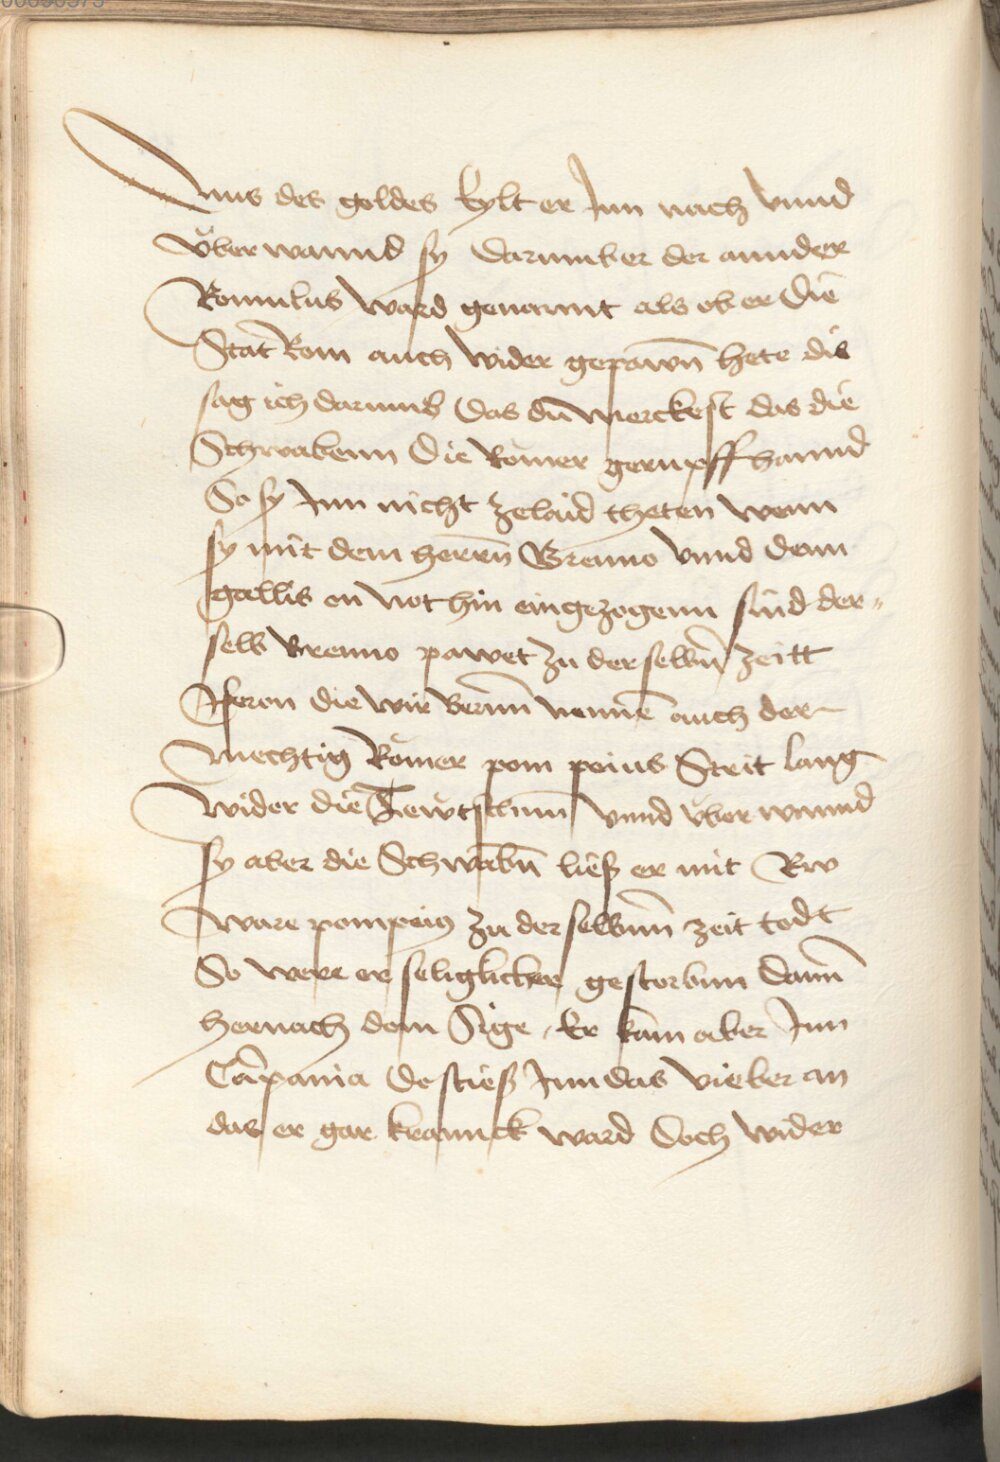 uns des goldes kylt er Inn nach vnnd
vber wannd sy Darumber der annder
Romulus ward genannt als ob er Die
Stat Rom auch wider gepawn̄ hete dis
sag ich darumb Das du merckest das die
Schwabenn Die Romer gerupff hannd
So sy Inn nicht zelaid theten wenn
sy mit dem herrn̄ Brenno vnnd denn
gallis on not hin eingezogenn sind der„
selb Brenno pawet zu der selbn̄ zeitt
Iferon die wir Bernn̄ nennē auch der
mechtig Romer pom peius Streit lang
wider die Tewtschnn̄ vnnd vber wannd
sy aber die Schwabn̄ ließ er mit Rw
ware pompeiꝯ zu der selbnn̄ zeit todt
So were er seliglicher gestorbnn Dann̄
hernach dem Sige, Er kam aber Inn
Cāpania Do stieß Inn das vieber an
das er gar krannck ward Doch wider